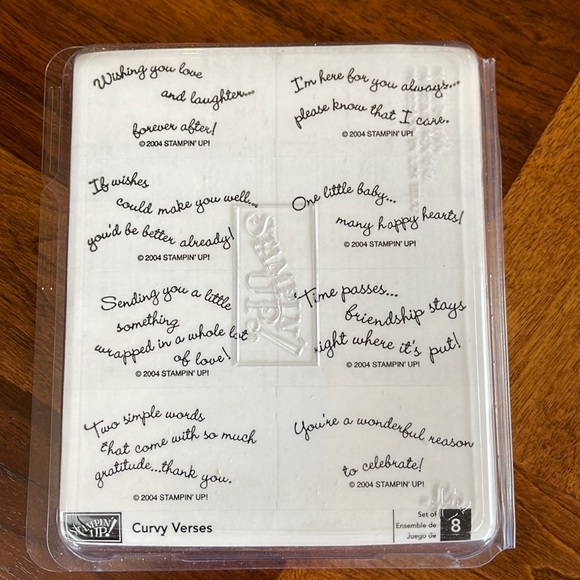 Wishing you love
and laughter...
forever after!
© 2004 STAMPIN' UP!
I'm here for you always...
please know that I care.
© 2004 STAMPIN' UP!
If wishes
could make you well...
you'd be better already!
© 2004 STAMPIN' UP!
One little baby...
many happy hearts!
© 2004 STAMPIN' UP!
Sending you a little
something
wrapped in a whole lot
of love!
© 2004 STAMPIN' UP!
Time passes...
friendship stays
right where it's put!
© 2004 STAMPIN' UP!
Two simple words
that come with so much
gratitude...thank you.
© 2004 STAMPIN' UP!
You're a wonderful reason
to celebrate!
© 2004 STAMPIN' UP!
STAMPIN' UP!
STAMPIN'
UP!
Curvy Verses
Set of
Ensemble de
Juego de
8